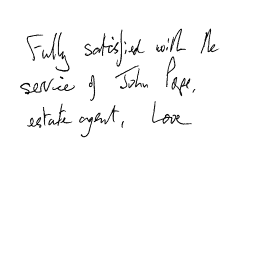 Fully satisfied with the
service of John Pope,
estate agent, Love